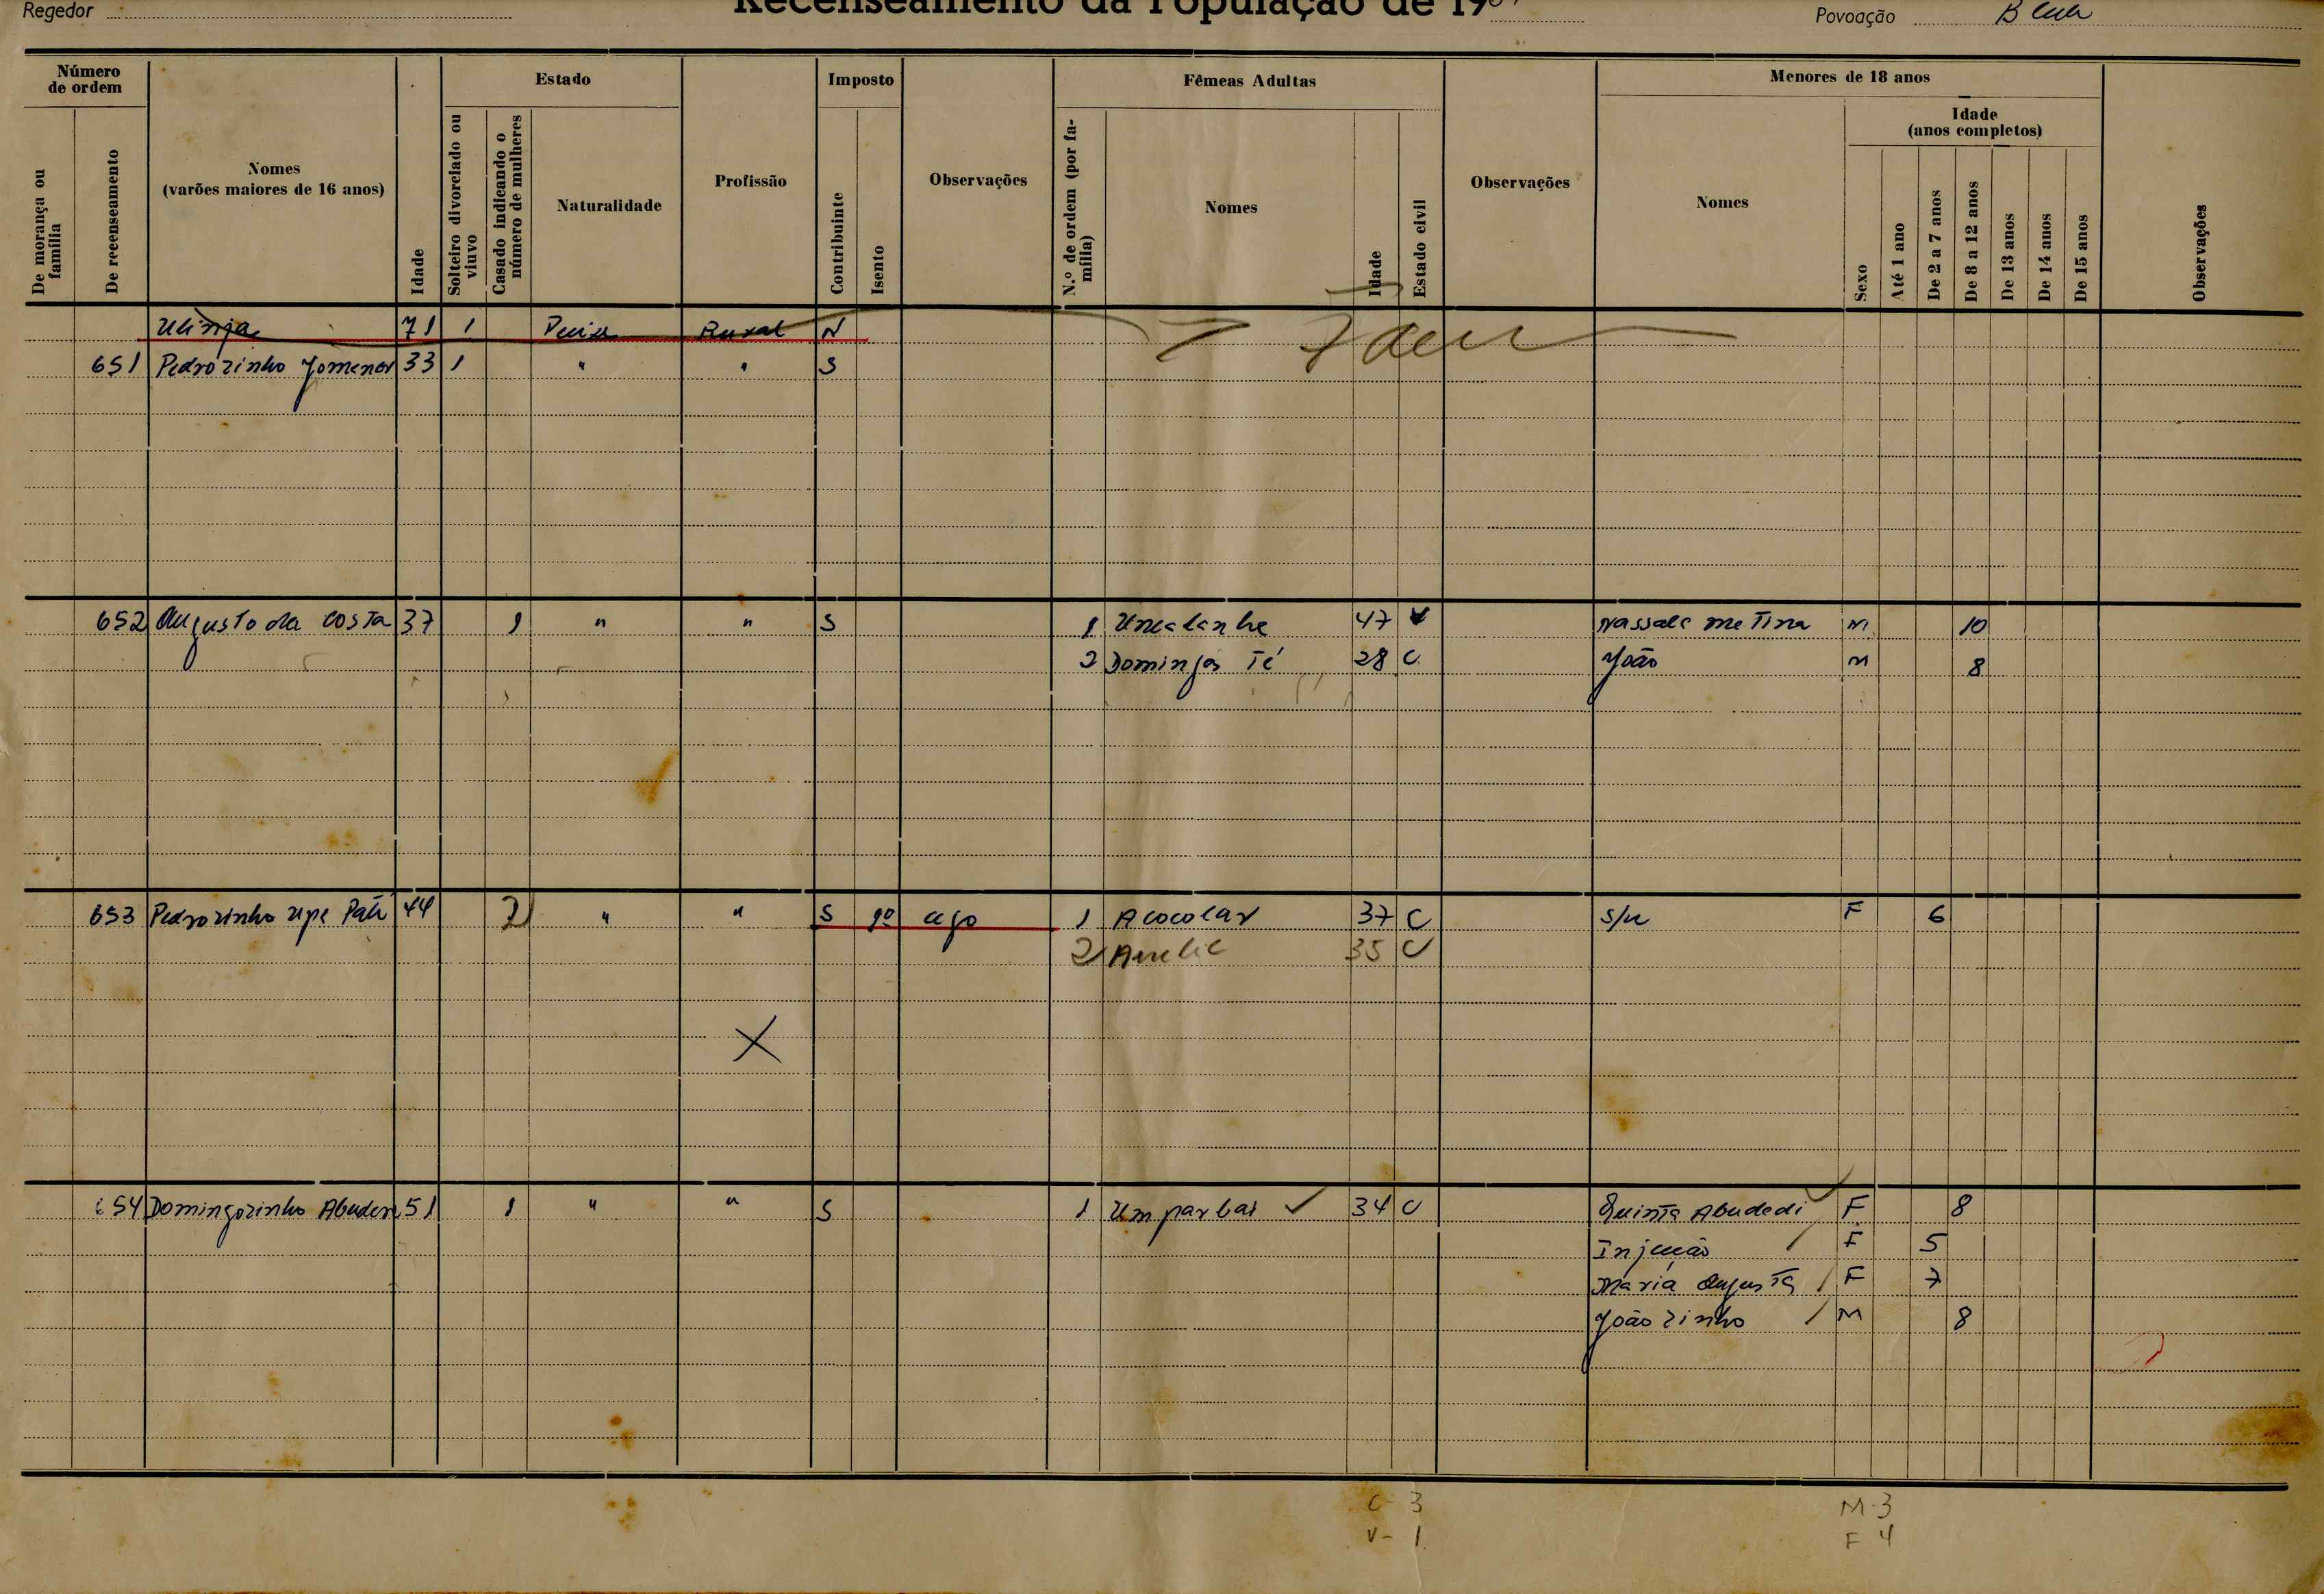 Regedor
Recenseamento da População de 19
Povoação
Número de ordem
De morança ou família
De recenseamento
Nomes (varões maiores de 16 anos)
Idade
Estado
Solteiro divorciado ou viuvo
Casado indicando o número de mulheres
Naturalidade
Profissão
Imposto
Contribuinte
Isento
Observações
Fêmeas Adultas
N.º de ordem (por família)
Nomes
Idade
Estado civil
Observações
Menores de 18 anos
Nomes
Sexo
Idade (anos completos)
Até 1 ano
De 2 a 7 anos
De 8 a 12 anos
De 13 anos
De 14 anos
De 15 anos
Observações
71 1 Rural N
651 Pedrozinho 33 1 " " S
652 Augusto da Costa 37 1 " " S 1 47 V M 10
2 Domingas Té 28 C João M 8
653 Pedrozinho 44 2 " " S 1 Acocolar 37 C s/n F 6
2 35 C
X
654 Domingozinho 51 1 " " S 1 Umparbai 34 C Quinta Abudedi F 8
Injecção F 5
Maria Augusta F 7
João zinho M 8
C- 3
V- 1
M-3
F 4